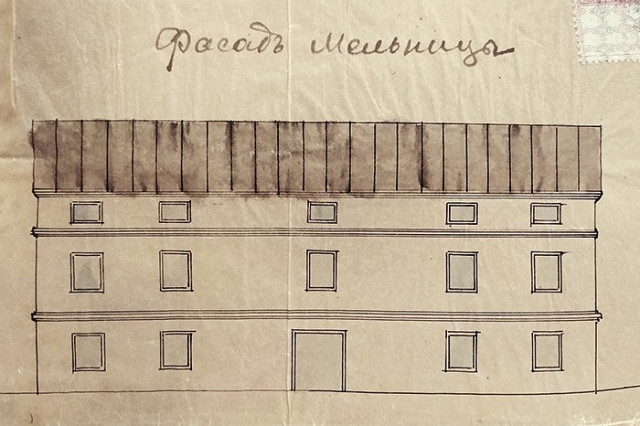 Фасадъ Мельницы